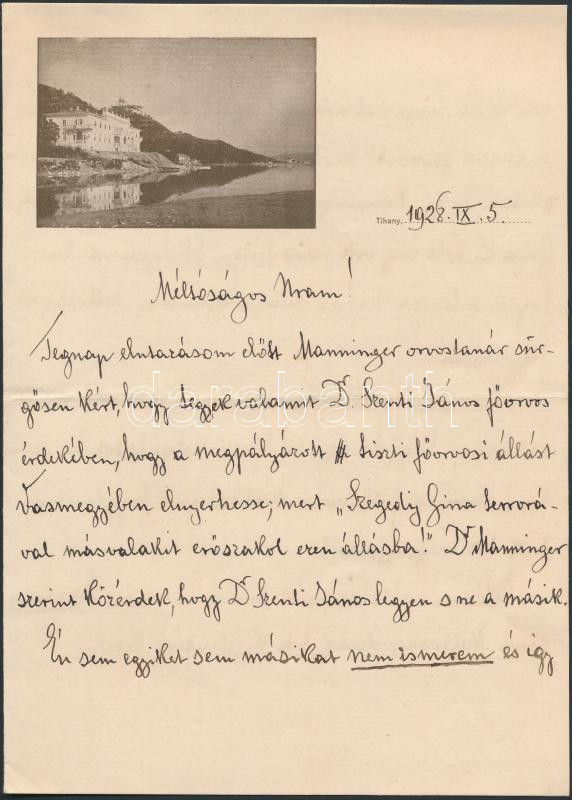 Tihany, 1928. IX. 5.
Méltóságos Uram!
Tegnap elutazásom előtt Manninger orvostanár sür-
gősen kért, hogy tegyek valamit Dr. Szenti János főorvos
érdekében, hogy a megpályázott tiszti főorvosi állást
Vasmegyében elnyerhesse; mert „Szegedy Gina terrorá-
val másvalakit erőszakol ezen állásba!" Dr Manninger
szerint közérdek, hogy Dr Szenti János legyen s ne a másik.
Én sem egyiket sem másikat nem ismerem és így
darabanth.com